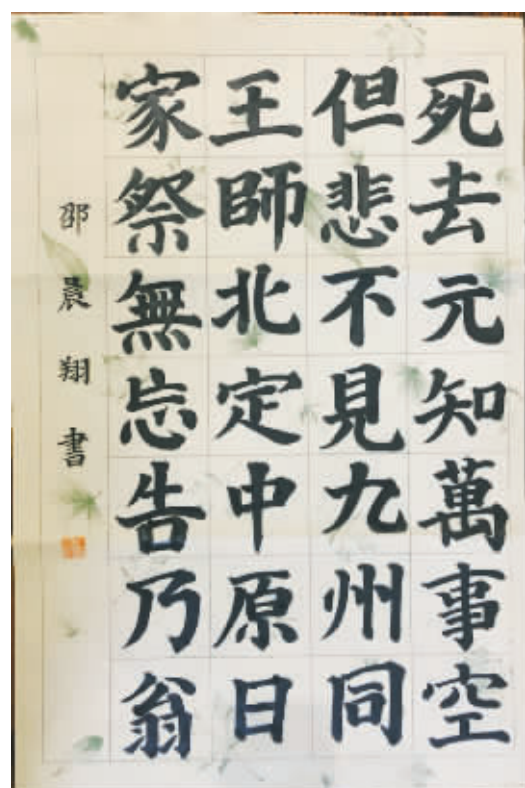 死去元知萬事空
但悲不見九州同
王師北定中原日
家祭無忘告乃翁
邵晨翔書